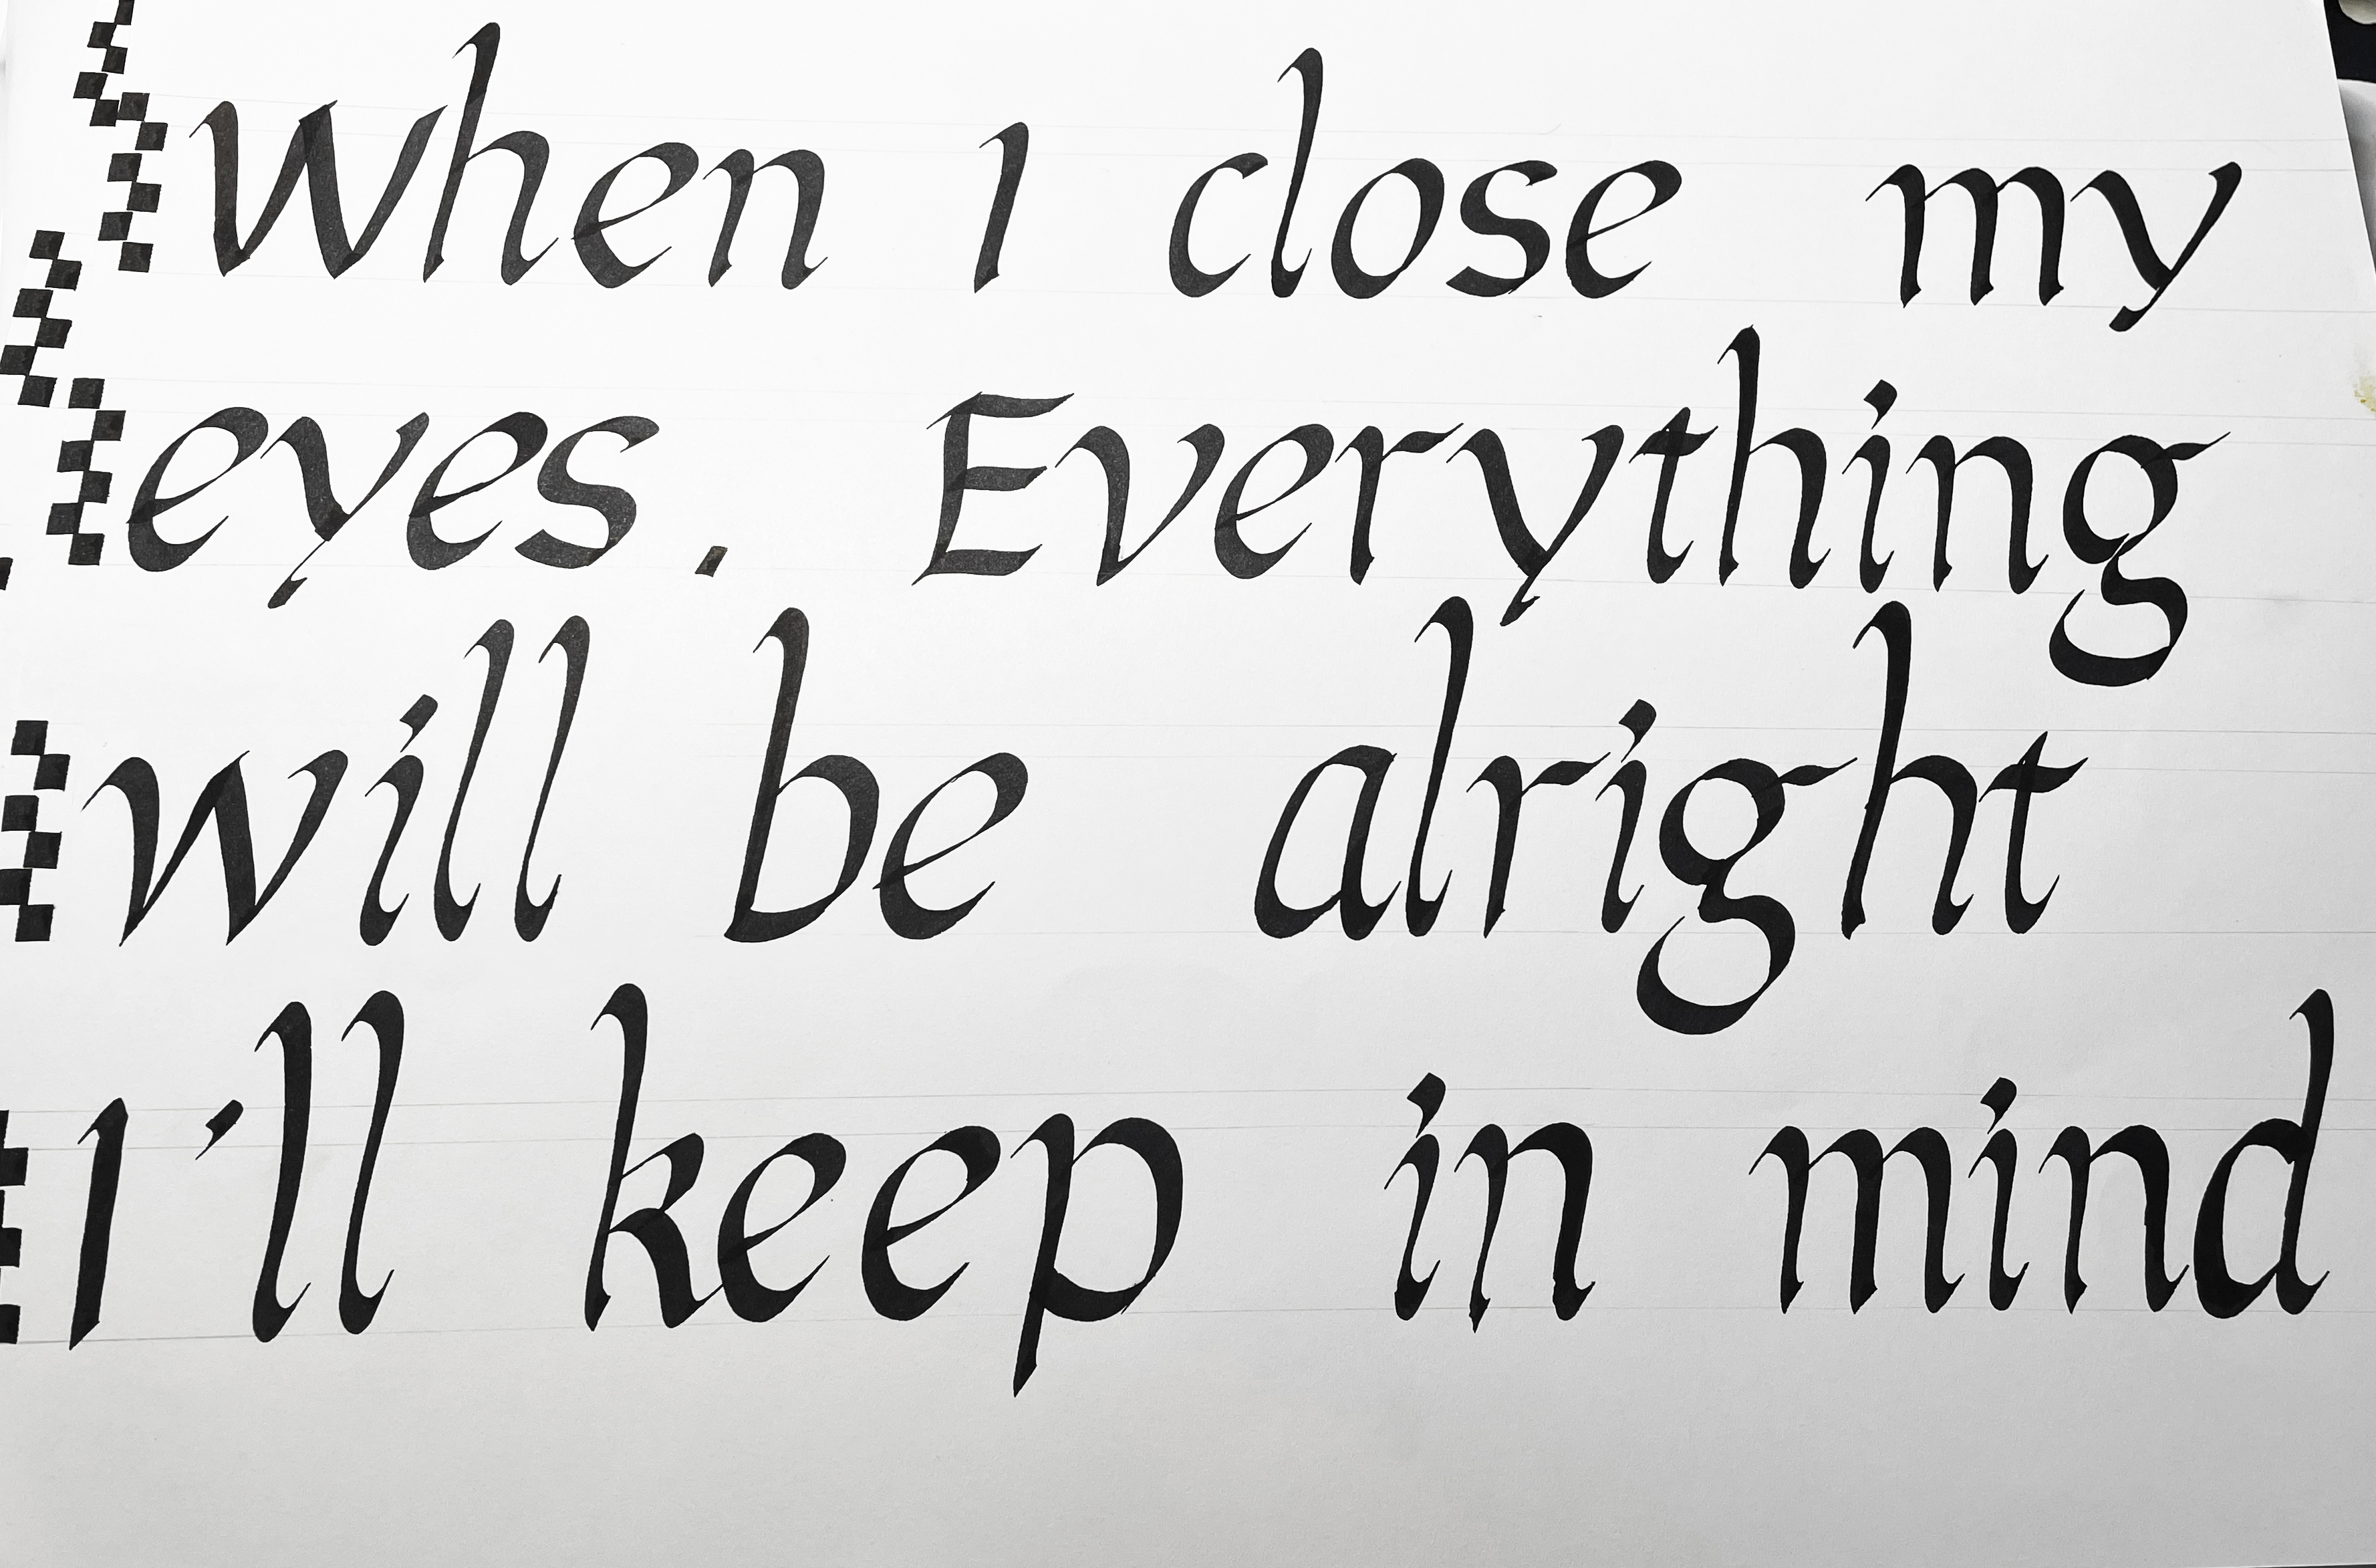 When I close my
eyes. Everything
will be alright
I'll keep in mind